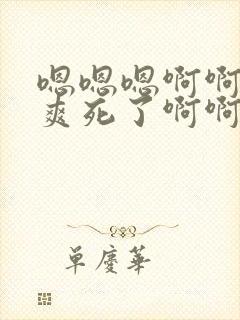 嗯嗯嗯啊啊
爽死了啊啊
单庆华